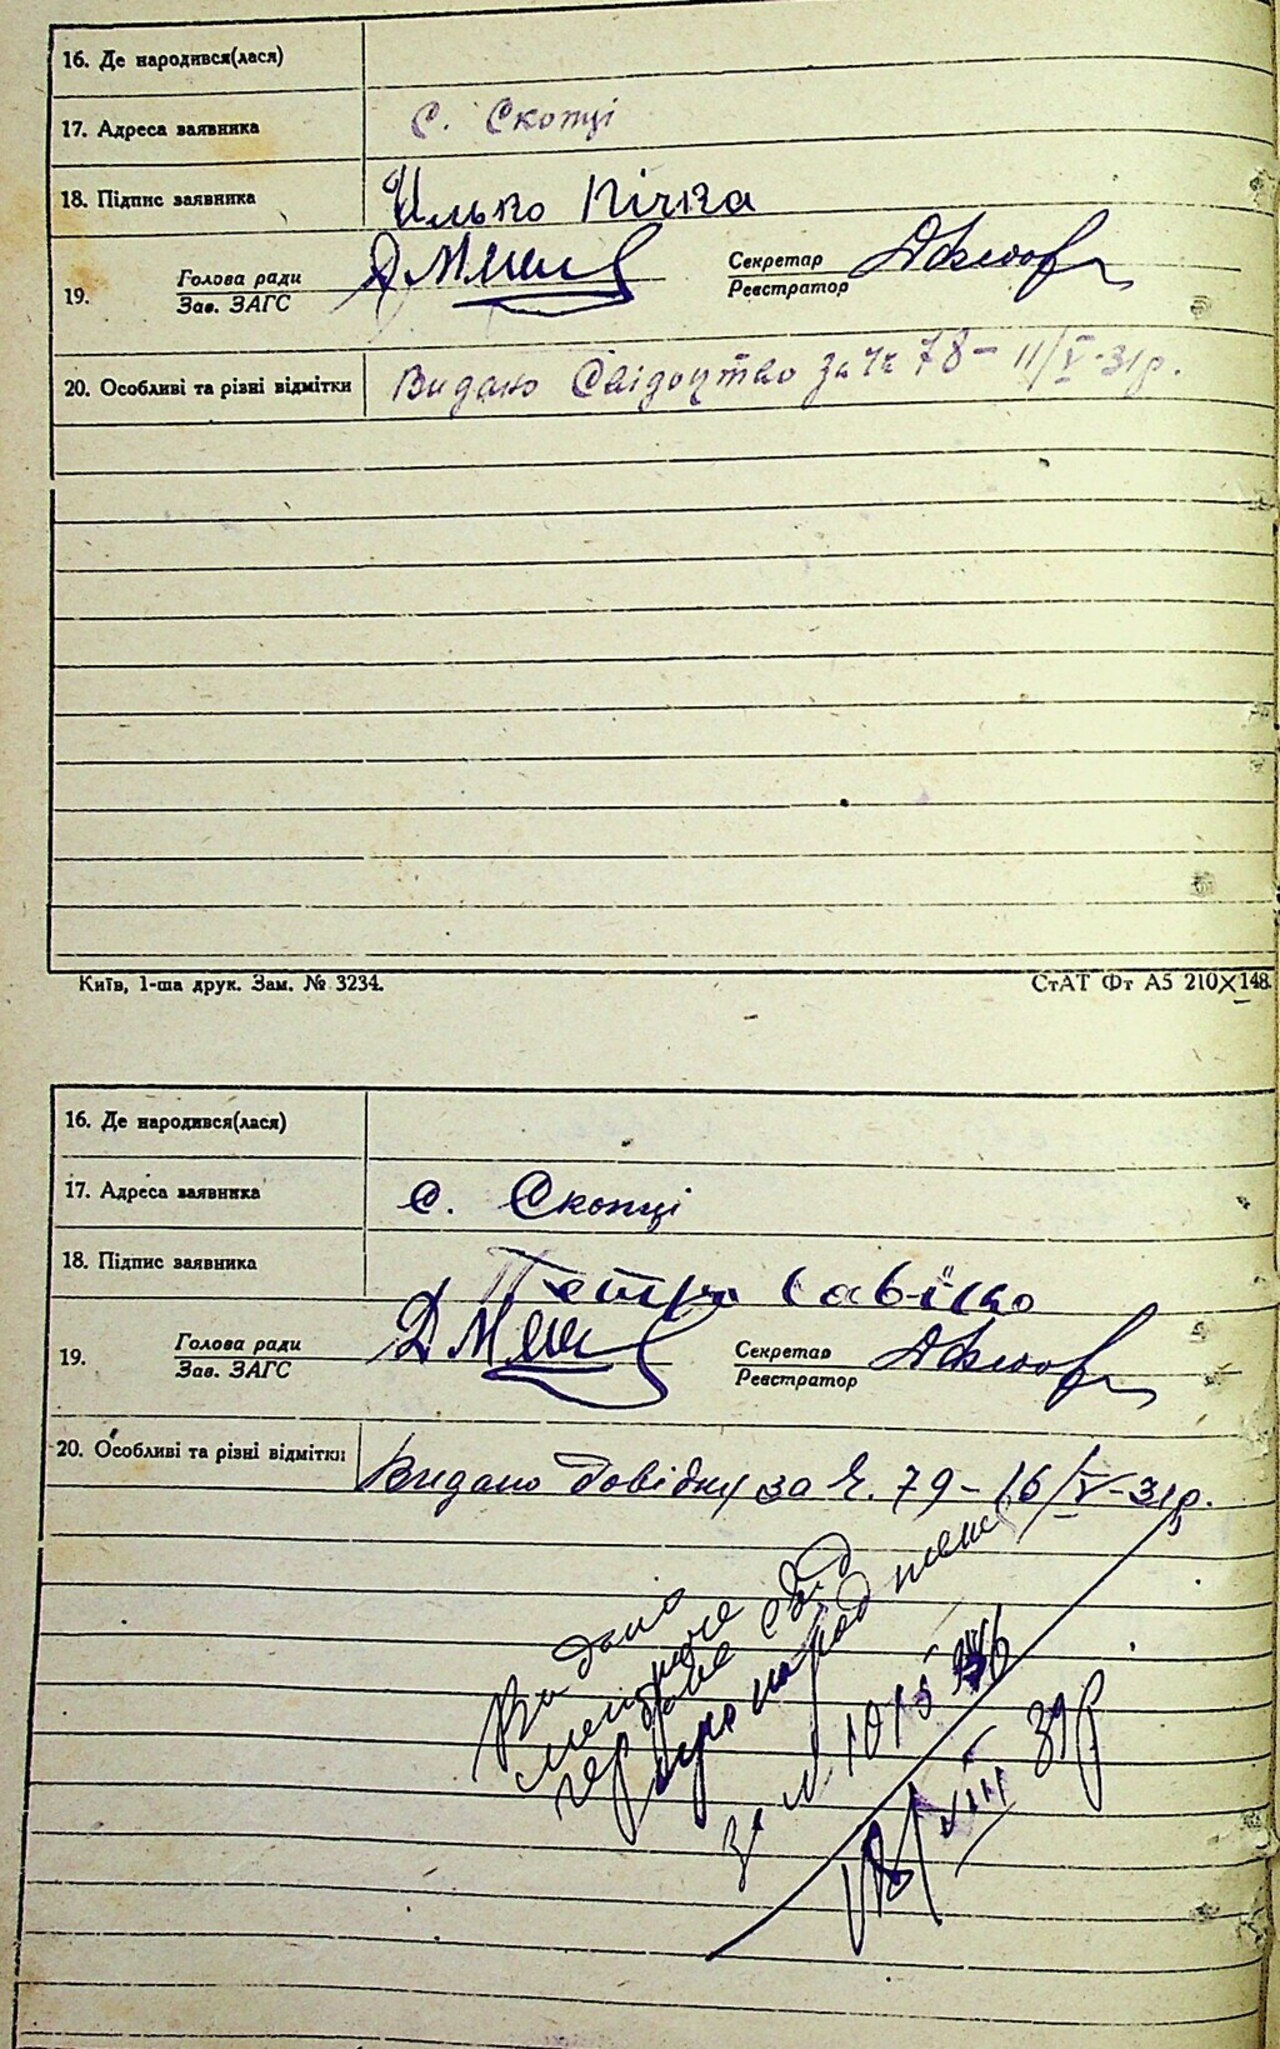 16. Де народився(лася)
17. Адреса заявника с. Скопці
18. Підпис заявника Илько Пічка
Голова ради Секретар
19.
Зав. ЗАГС Реєстратор
20. Особливі та різні відмітки Видано Свідоцтво за Ч. 78 – 11/V-31р.
Київ, 1-ша друк. Зам. № 3234. СтАТ Фт А5 210×148.
16. Де народився(лася)
17. Адреса заявника с. Скопці
18. Підпис заявника Петро
Голова ради Секретар
19.
Зав. ЗАГС Реєстратор
20. Особливі та різні відмітки Видано довідку за Ч. 79 – 16/V-31р.
Видано
свід
за № 1015
VIII 31р